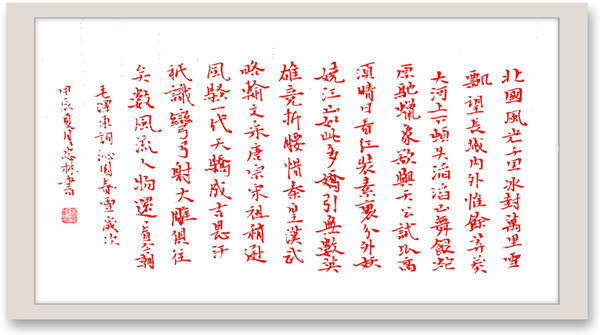 北國風光千里冰封萬里雪
飄望長城內外惟餘莽莽
大河上下頓失滔滔山舞銀蛇
原馳蠟象欲與天公試比高
須晴日看紅裝素裹分外妖
嬈江山如此多嬌引無數英
雄競折腰惜秦皇漢武
略輸文采唐宗宋祖稍遜
風騷一代天驕成吉思汗
祇識彎弓射大雕俱往
矣數風流人物還看今朝
毛澤東詞沁園春雪歲次
甲辰夏月忠書